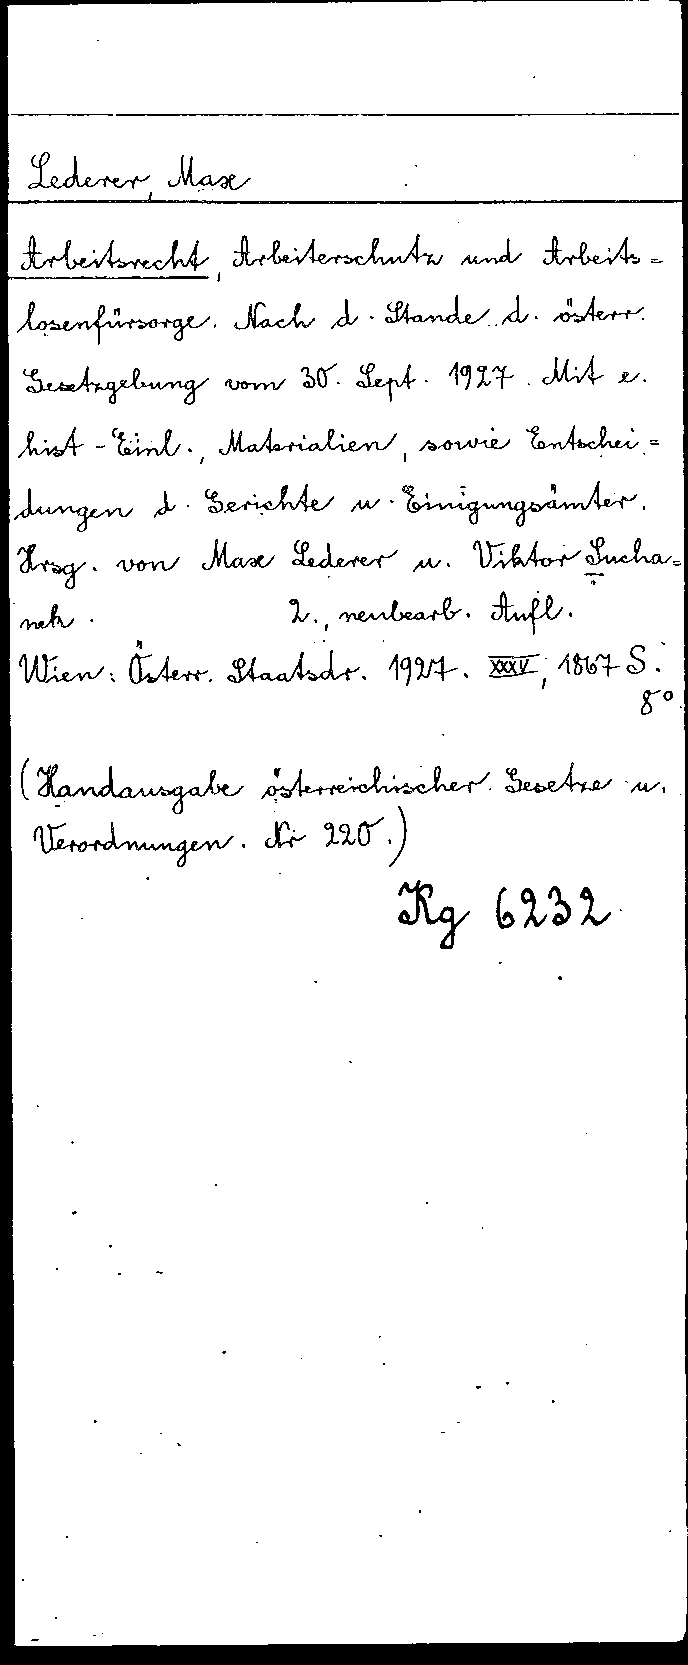 Lederer, Max
Arbeitsrecht, Arbeiterschutz und Arbeits=
losenfürsorge. Nach d. Stande d. österr.
Gesetzgebung vom 30. Sept. 1927. Mit e.
hist-Einl., Materialien, sowie Entschei=
dungen d. Gerichte u. Einigungsämter.
Hrsg. von Max Lederer u. Viktor Sucha=
nek. 2., neubearb. Aufl.
Wien: Österr. Staatsdr. 1927. XXXV, 1867 S.
8°
(Handausgabe österreichischer Gesetze u.
Verordnungen. Nr 220.)
Kg 6232